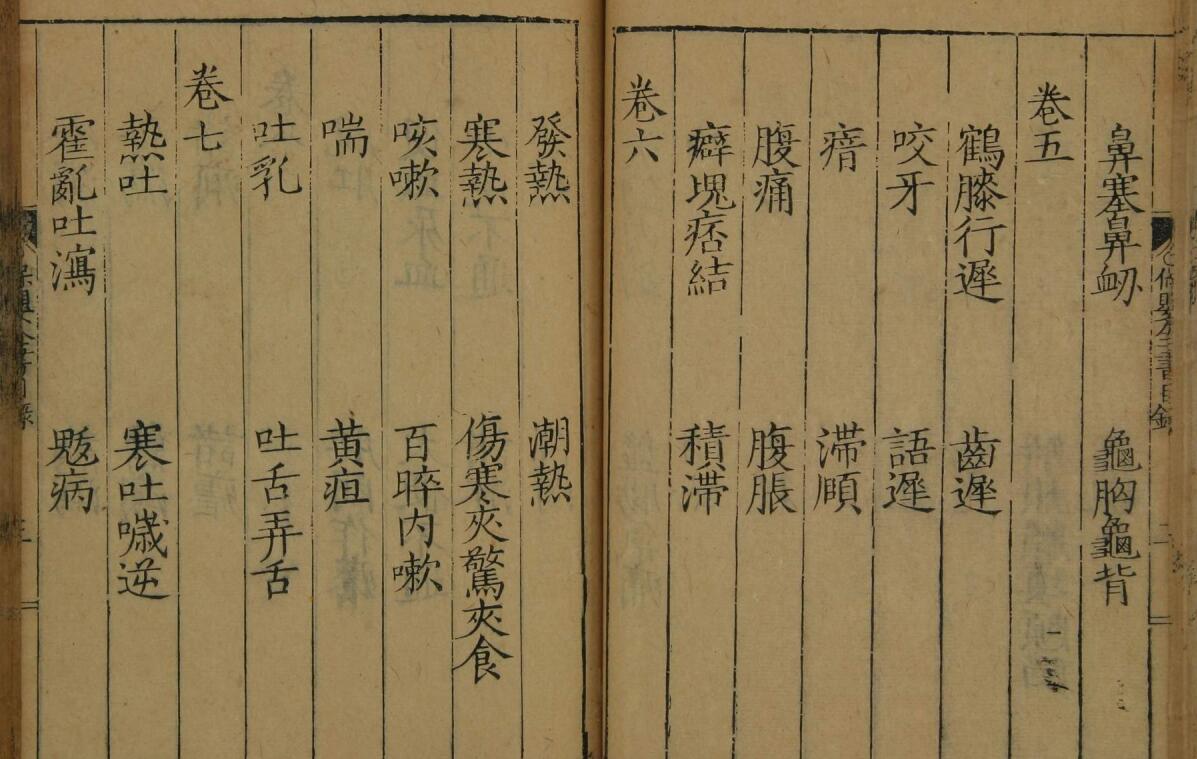 鼻塞鼻衂 龜胸龜背
卷五
鶴膝行遲 齒遲
咬牙 語遲
瘖 滯頤
腹痛 腹脹
癖塊痞結 積滯
卷六
發熱 潮熱
寒熱 傷寒夾驚夾食
咳嗽 百晬内嗽
喘 黄疸
吐乳 吐舌弄舌
卷七
熱吐 寒吐噦逆
霍亂吐瀉 鬾病